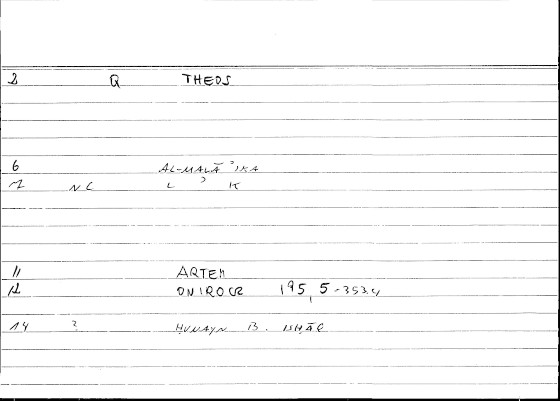 2 Q THEOS
6 AL-MALĀʾIKA
7 NC L ʾ K
11 ARTEM
12 ONIROCR 195,5-353.4
14 ? ḤUNAYN B. ISḤĀQ